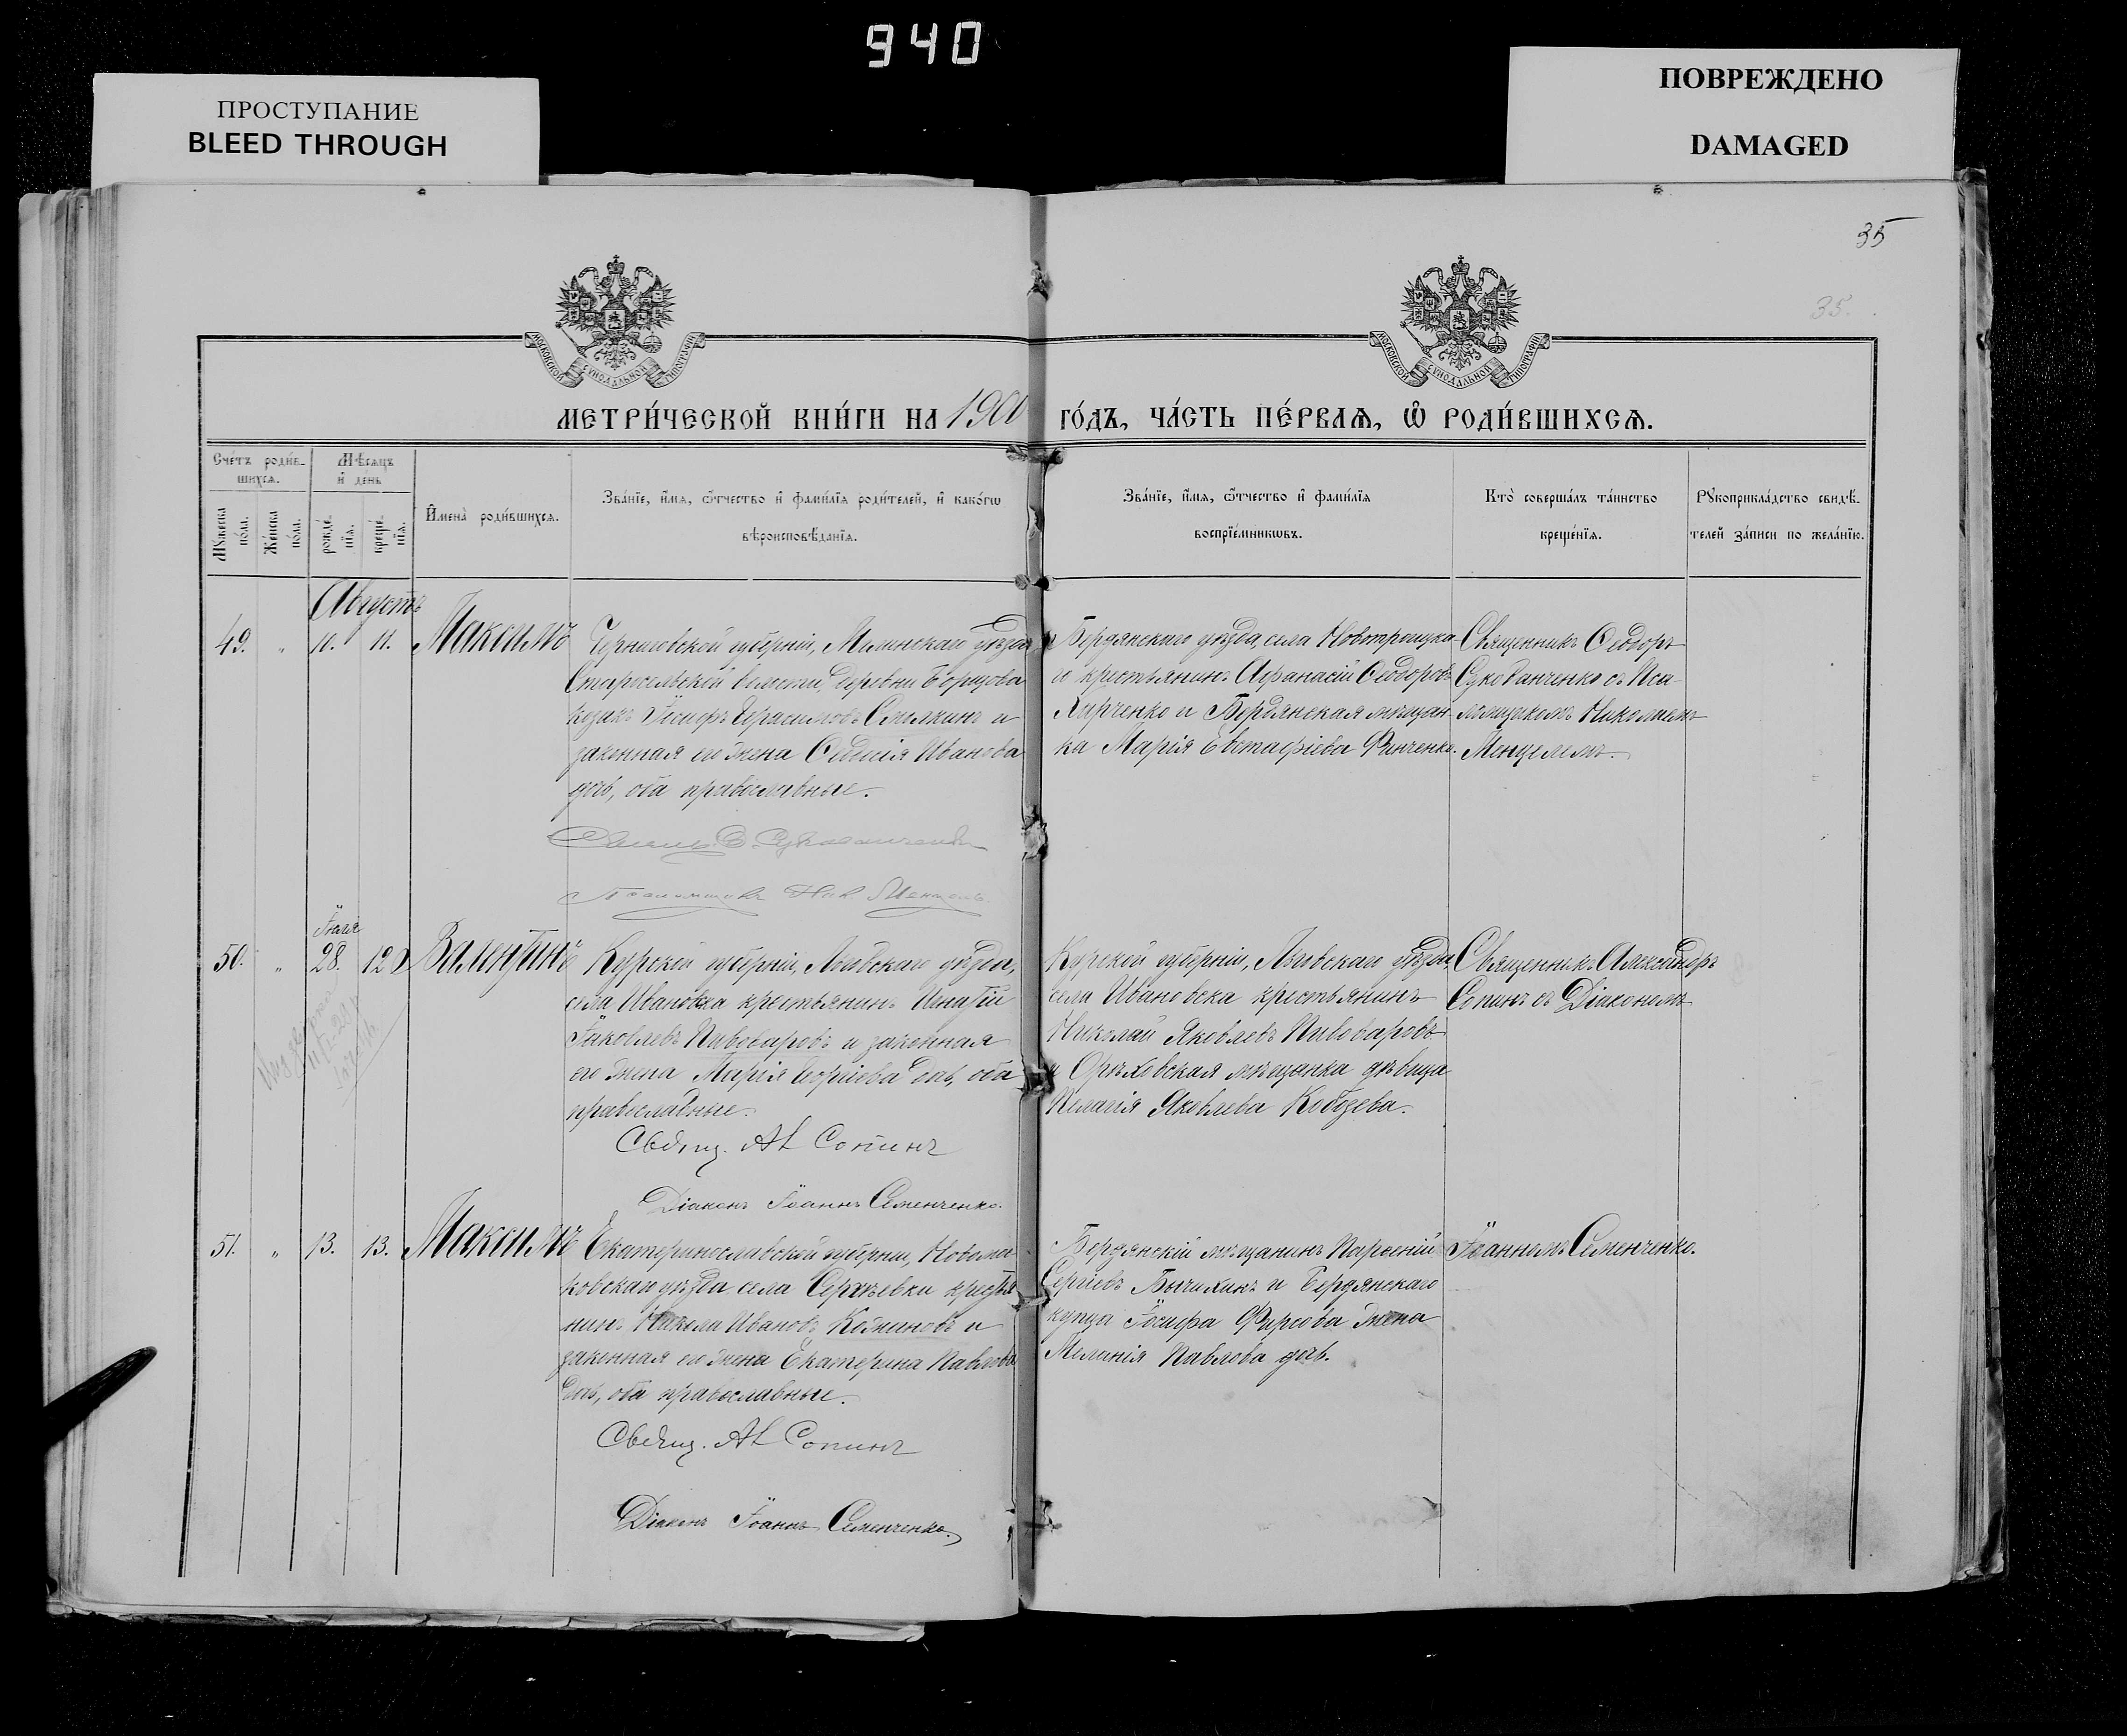 940
ПРОСТУПАНИЕ
BLEED THROUGH
ПОВРЕЖДЕНО
DAMAGED
35
35.
МОСКОВСКОЙ СѴНОДАЛЬНОЙ ТИПОГРАФІИ
МОСКОВСКОЙ СѴНОДАЛЬНОЙ ТИПОГРАФІИ
МЕТРИ́ЧЕСКОЙ КНИ́ГИ НА 1900 ГО́ДЪ, ЧА́СТЬ ПЕ́РВАѦ, Ѡ҆ РОДИ́ВШИХСѦ.
Сче́тъ роди́в-
шихсѧ.
Мꙋжеска по́ла.
Же́нска по́ла.
Мѣ́сѧцъ
и҆ де́нь
рожде́-
нїѧ.
креще́-
нїѧ.
И҆мена̀ роди́вшихсѧ.
Зва́нїе, и҆́мѧ, ѻ҆́тчество и҆ фами́лїѧ роди́телей, и҆ како́гѡ
вѣроисповѣ́данїѧ.
Зва́нїе, и҆́мѧ, ѻ҆́тчество и҆ фами́лїѧ
воспрїе́мникѡвъ.
Кто̀ соверша́лъ та́инство
креще́нїѧ.
Рꙋкоприкла́дство свидѣ́-
телей за́писи по жела́нїю.
Августъ
49. „ 10. 11. Максимъ
Черниговской губерніи, Мглинскаго уѣзда
Старосельской волости, деревни Борщова
козакъ Іосифъ Герасимовъ и
законная его жена Ѳеодосія Иванова
дочь, оба православные.
Бердянскаго уѣзда, села Новотроицка-
го крестьянинъ Аѳанасій Ѳеодоровъ
Харченко и Бердянская мѣщан-
ка Марія Евстафіева Финченко.
Священникъ Ѳеодоръ
съ Пса-
ломщикомъ Николаемъ
Менцелемъ.
Іюля
50. „ 28. 12 Валентинъ
Курской губерніи, Льговскаго уѣзда,
села Ивановска крестьянинъ Игнатій
Яковлевъ Пивоваровъ и законная
его жена Марія Георгіева дочь, оба
православные.
Священ. Ал Сопинъ
Діаконъ Іоаннъ Семенченко.
Курской губерніи, Льговскаго уѣзда,
села Ивановска крестьянинъ
Николай Яковлевъ Пивоваровъ
и Орѣховская мѣщанка дѣвица
Пелагія Яковлева Кобозева.
Священникъ Александръ
Сопинъ съ Діакономъ
51. „ 13. 13. Максимъ
Екатеринославской губерніи, Новомос-
ковскаго уѣзда села Сергѣевки крестья
нинъ Ивановъ и
законная его жена Екатерина Павлова
дочь, оба православные.
Священ. Ал Сопинъ
Діаконъ Іоаннъ Семенченко.
Бердянскій мѣщанинъ Парѳеній
Сергіевъ Бычихинъ и Бердянскаго
купца Іосифа Фирсова жена
Меланія Павлова дочь.
Іоанномъ Семенченко.